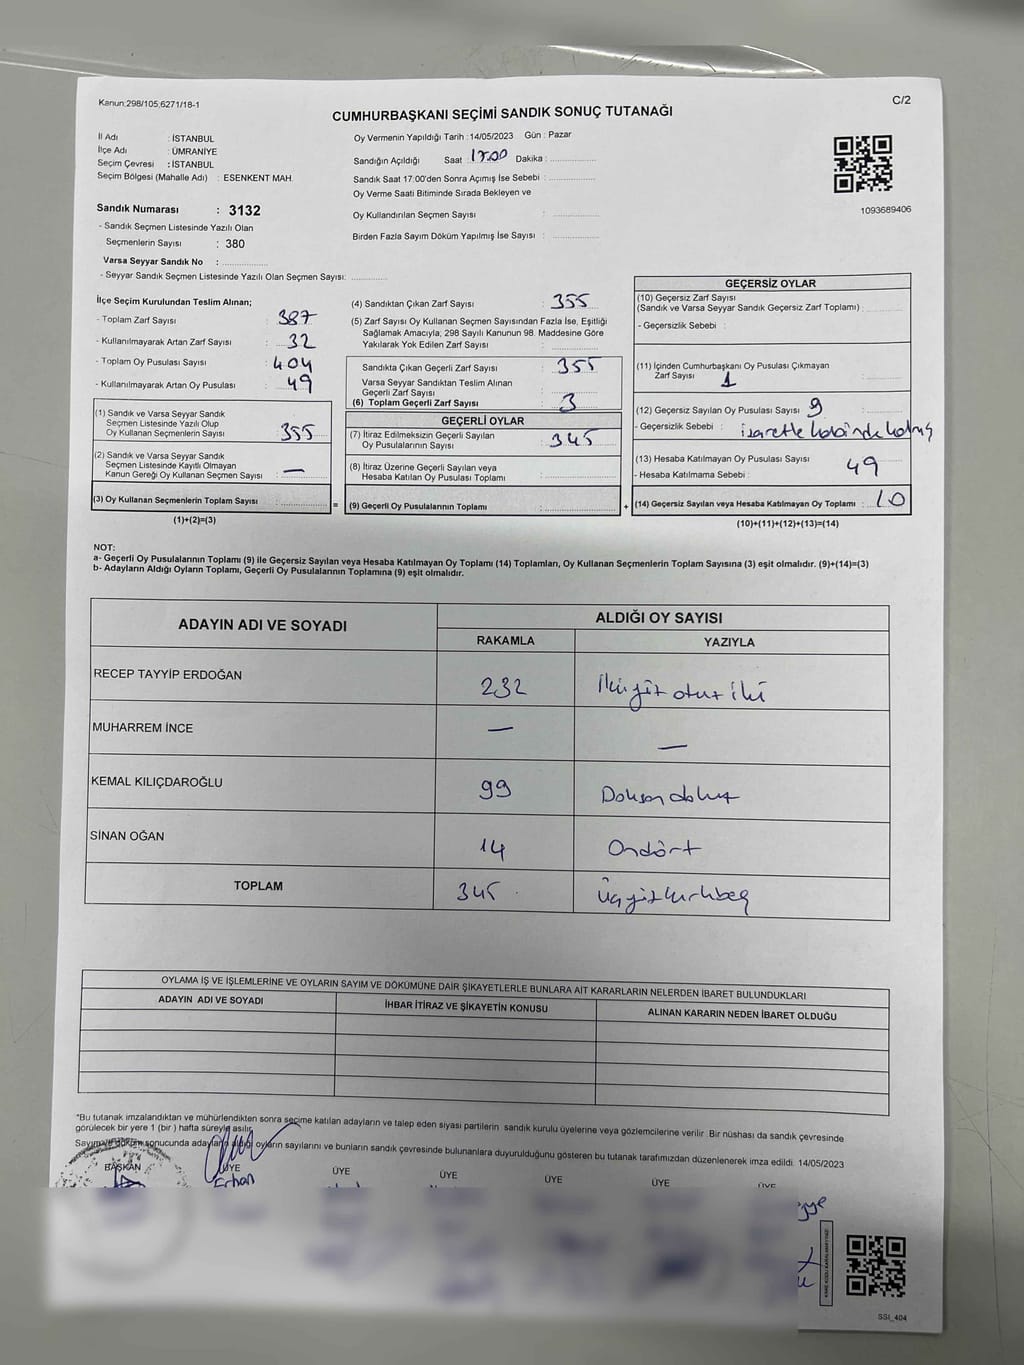 Kanun:298/105;6271/18-1
C/2
CUMHURBAŞKANI SEÇİMİ SANDIK SONUÇ TUTANAĞI
İl Adı : İSTANBUL
İlçe Adı : ÜMRANİYE
Seçim Çevresi : İSTANBUL
Seçim Bölgesi (Mahalle Adı) : ESENKENT MAH.
Sandık Numarası : 3132
- Sandık Seçmen Listesinde Yazılı Olan
Seçmenlerin Sayısı : 380
Varsa Seyyar Sandık No :
- Seyyar Sandık Seçmen Listesinde Yazılı Olan Seçmen Sayısı:
Oy Vermenin Yapıldığı Tarih :14/05/2023 Gün : Pazar
Sandığın Açıldığı Saat : 17:00 Dakika :
Sandık Saat 17:00'den Sonra Açımış İse Sebebi :
Oy Verme Saati Bitiminde Sırada Bekleyen ve
Oy Kullandırılan Seçmen Sayısı :
Birden Fazla Sayım Döküm Yapılmış İse Sayısı :
1093689406
İlçe Seçim Kurulundan Teslim Alınan;
- Toplam Zarf Sayısı : 387
- Kullanılmayarak Artan Zarf Sayısı : 32
- Toplam Oy Pusulası Sayısı : 404
- Kullanılmayarak Artan Oy Pusulası : 49
(1) Sandık ve Varsa Seyyar Sandık
Seçmen Listesinde Yazılı Olup
Oy Kullanan Seçmenlerin Sayısı : 355
(2) Sandık ve Varsa Seyyar Sandık
Seçmen Listesinde Kayıtlı Olmayan
Kanun Gereği Oy Kullanan Seçmen Sayısı : —
(3) Oy Kullanan Seçmenlerin Toplam Sayısı :
(1)+(2)=(3)
=
(4) Sandıktan Çıkan Zarf Sayısı : 355
(5) Zarf Sayısı Oy Kullanan Seçmen Sayısından Fazla İse, Eşitliği
Sağlamak Amacıyla, 298 Sayılı Kanunun 98. Maddesine Göre
Yakılarak Yok Edilen Zarf Sayısı :
Sandıkta Çıkan Geçerli Zarf Sayısı : 355
Varsa Seyyar Sandıktan Teslim Alınan
Geçerli Zarf Sayısı :
(6) Toplam Geçerli Zarf Sayısı : 3
GEÇERLİ OYLAR
(7) İtiraz Edilmeksizin Geçerli Sayılan
Oy Pusulalarının Sayısı : 345
(8) İtiraz Üzerine Geçerli Sayılan veya
Hesaba Katılan Oy Pusulası Toplamı :
(9) Geçerli Oy Pusulalarının Toplamı :
+
GEÇERSİZ OYLAR
(10) Geçersiz Zarf Sayısı
(Sandık ve Varsa Seyyar Sandık Geçersiz Zarf Toplamı) :
- Geçersizlik Sebebi :
(11) İçinden Cumhurbaşkanı Oy Pusulası Çıkmayan
Zarf Sayısı 1 :
(12) Geçersiz Sayılan Oy Pusulası Sayısı 9 :
- Geçersizlik Sebebi :
(13) Hesaba Katılmayan Oy Pusulası Sayısı : 49
- Hesaba Katılmama Sebebi :
(14) Geçersiz Sayılan veya Hesaba Katılmayan Oy Toplamı : 10
(10)+(11)+(12)+(13)=(14)
NOT:
a- Geçerli Oy Pusulalarının Toplamı (9) ile Geçersiz Sayılan veya Hesaba Katılmayan Oy Toplamı (14) Toplamları, Oy Kullanan Seçmenlerin Toplam Sayısına (3) eşit olmalıdır. (9)+(14)=(3)
b- Adayların Aldığı Oyların Toplamı, Geçerli Oy Pusulalarının Toplamına (9) eşit olmalıdır.
ADAYIN ADI VE SOYADI
ALDIĞI OY SAYISI
RAKAMLA YAZIYLA
RECEP TAYYİP ERDOĞAN 232 İkiyüz otuz iki
MUHARREM İNCE — —
KEMAL KILIÇDAROĞLU 99 Doksan dokuz
SİNAN OĞAN 14 Ondört
TOPLAM 345 Üçyüzkırkbeş
OYLAMA İŞ VE İŞLEMLERİNE VE OYLARIN SAYIM VE DÖKÜMÜNE DAİR ŞİKAYETLERLE BUNLARA AİT KARARLARIN NELERDEN İBARET BULUNDUKLARI
ADAYIN ADI VE SOYADI İHBAR İTİRAZ VE ŞİKAYETİN KONUSU ALINAN KARARIN NEDEN İBARET OLDUĞU
*Bu tutanak imzalandıktan ve mühürlendikten sonra seçime katılan adayların ve talep eden siyasi partilerin sandık kurulu üyelerine veya gözlemcilerine verilir .Bir nüshası da sandık çevresinde
görülecek bir yere 1 (bir ) hafta süreyle asılır.
Sayım ve döküm sonucunda adayların aldığı oyların sayılarını ve bunların sandık çevresinde bulunanlara duyurulduğunu gösteren bu tutanak tarafımızdan düzenlenerek imza edildi. 14/05/2023
BAŞKAN ÜYE ÜYE ÜYE ÜYE ÜYE ÜYE
Erhan
SSI_404